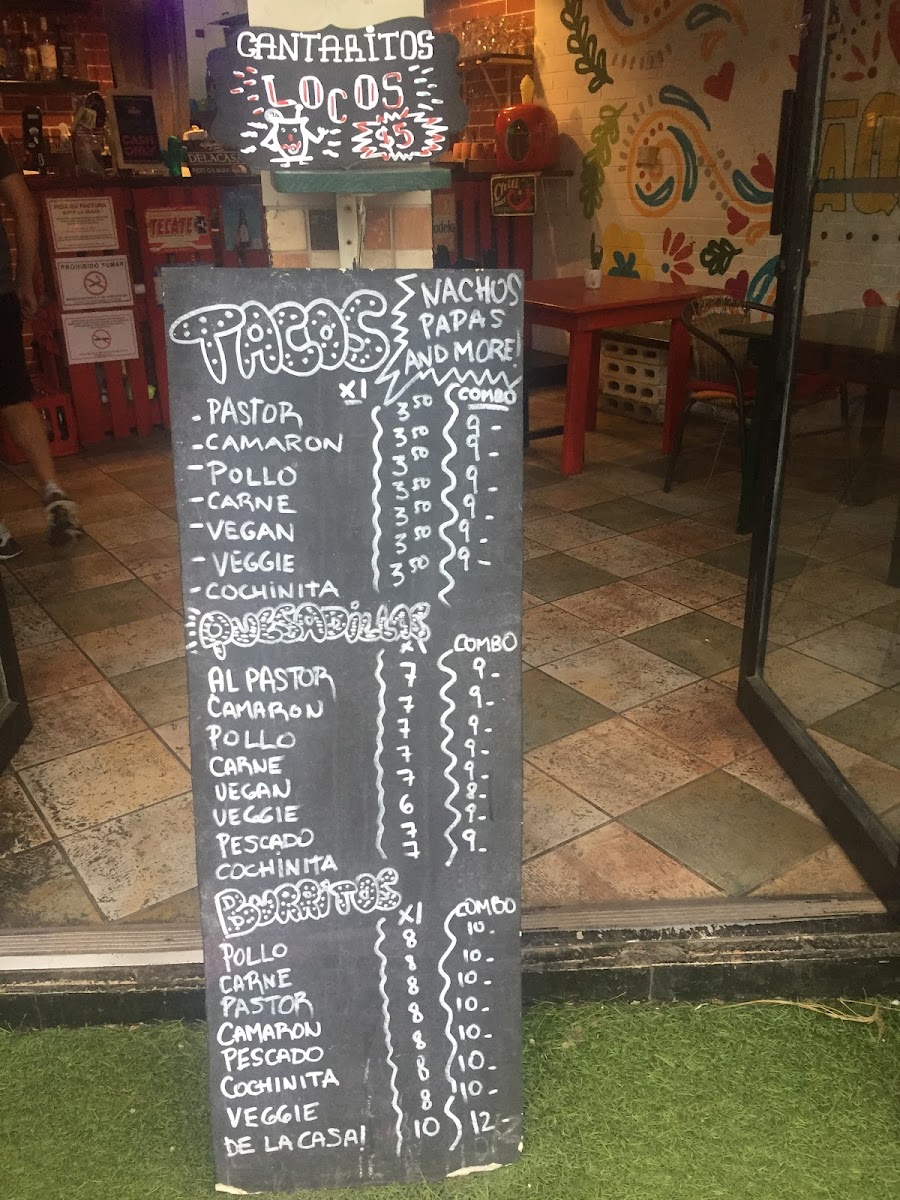 CANTARITOS
LOCOS
$5
DELACASA
TECATE
PROHIBIDO FUMAR
Chill
TACOS
NACHOS
PAPAS
AND MORE!
X1 COMBO
- PASTOR 3 50 9-
- CAMARON 3 50 9-
- POLLO 3 50 9-
- CARNE 3 50 9-
- VEGAN 3 50 9-
- VEGGIE 3 50 9-
- COCHINITA 3 50
QUESADILLAS
X1 COMBO
AL PASTOR 7 9-
CAMARON 7 9-
POLLO 7 9-
CARNE 7 9-
VEGAN 7 9-
VEGGIE 6 8-
PESCADO 7 9-
COCHINITA 7 9-
BURRITOS
X1 COMBO
POLLO 8 10-
CARNE 8 10-
PASTOR 8 10-
CAMARON 8 10-
PESCADO 8 10-
COCHINITA 8 10-
VEGGIE 8 10-
DE LA CASA! 10 12-